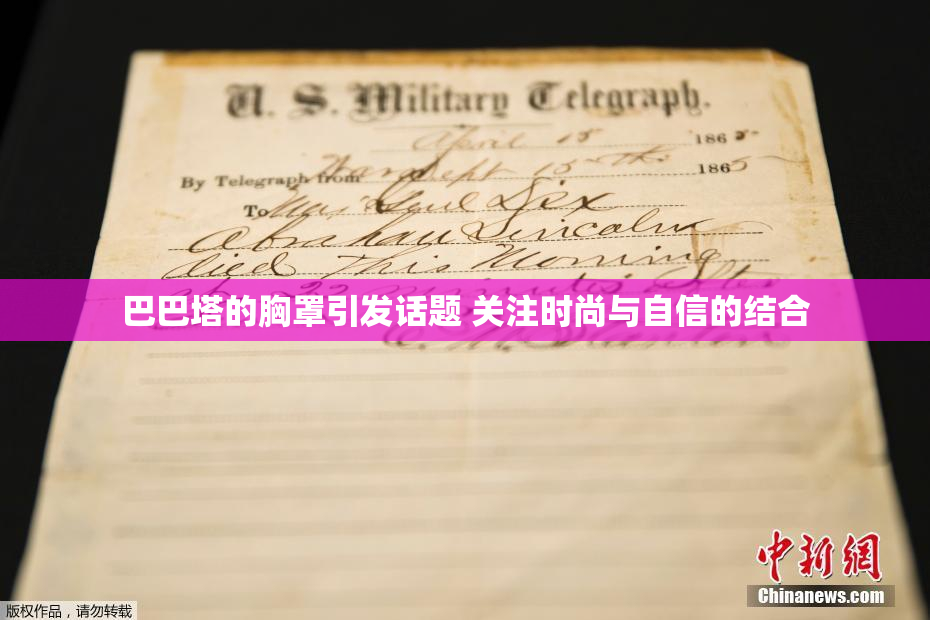 U. S. Military Telegraph.
April 15 1865
By Telegraph from War Dept 15th 1865
To Maj Genl Dix
Abraham Lincoln
died This Morning
at 22 minutes after
巴巴塔的胸罩引发话题 关注时尚与自信的结合
中新网
Chinanews.com
版权作品，请勿转载